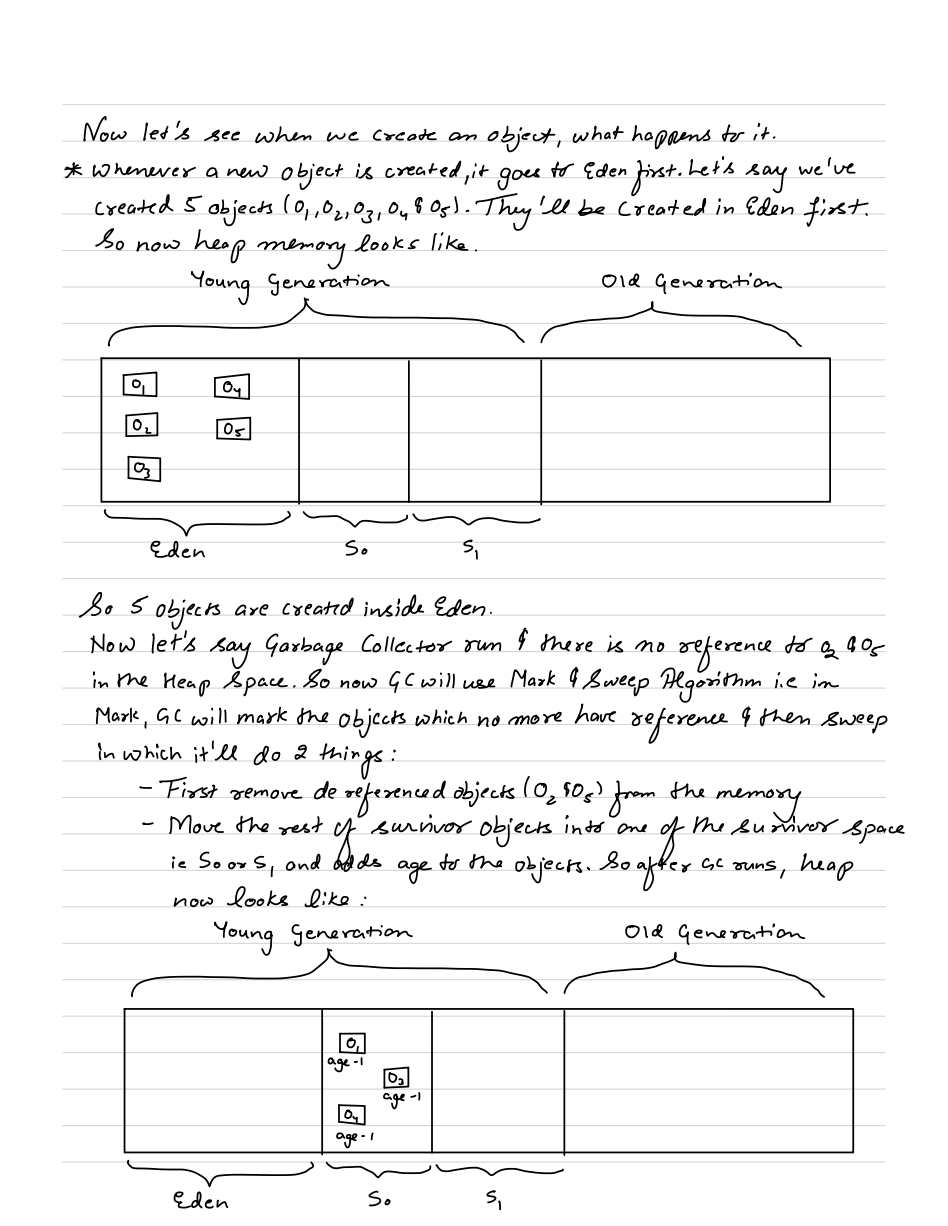 Now let's see when we create an object, what happens to it.
* Whenever a new object is created, it goes to Eden first. Let's say we've
created 5 objects (O1, O2, O3, O4 & O5). They'll be created in Eden first.
So now heap memory looks like.
Young Generation Old Generation
O1 O4
O2 O5
O3
Eden S0 S1
So 5 objects are created inside Eden.
Now let's say Garbage Collector run & there is no reference to O2 & O5
in the Heap Space. So now GC will use Mark & Sweep Algorithm i.e in
Mark, GC will mark the objects which no more have reference & then sweep
in which it'll do 2 things:
- First remove de referenced objects (O2 & O5) from the memory
- Move the rest of survivor objects into one of the survivor space
ie S0 or S1 and adds age to the objects. So after GC runs, heap
now looks like:
Young Generation Old Generation
O1
age-1
O3
age-1
O4
age-1
Eden S0 S1